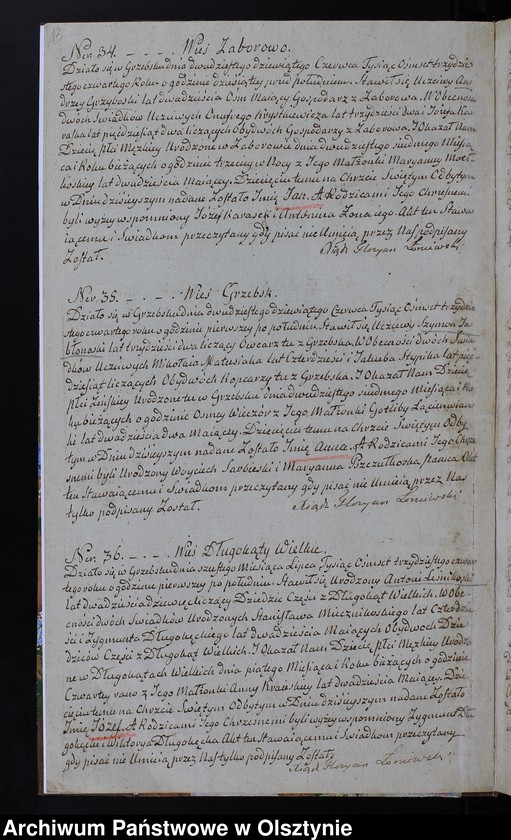 Ner. 34. – . – . – Wieś Zaborowo.
Działo się w Grzebsku dnia dwudziestego dziewiątego Czerwca Tysiąc Ośmset trzydzie-
stego czwartego Roku o godzinie dziesiątey przed południem. Stawił się Uczciwy An-
drzey Grzyboski lat dwadzieścia Ośm Maiący Gospodarz z Zaborowa. W Obecności
dwóch Świadków Uczciwych Onufrego Krystkiewicza lat trzydzieści dwa i Józefa Ka-
raska lat piędziesiąt dwa liczących Obydwóch Gospodarzy z Zaborowa. I Okazał Nam
Dziecię płci Męzkiey Urodzone w Zaborowie dnia dwudziestego siudmego Miesią-
ca i Roku bieżących o godzinie trzeciey w Nocy z Jego Małżonki Maryanny
lat dwadzieścia Maiącey. Dziecięciu temu na Chrzcie Świętym Odbytym
w Dniu dzisieyszym nadane Zostało Imię Jan. A Rodzicami Jego Chrzesnemi
byli wyżey wspomniony Józef Karasek i Antonina Żona iego. Akt ten Stawa-
iącemu i Świadkom przeczytany gdy pisać nie Umieią, przez Nas podpisany
Został.
Xiądz Floryan Łoniewski
Ner. 35. – . – . – Wieś Grzebsk.
Działo się w Grzebsku dnia dwudziestego dziewiątego Czerwca Tysiąc Ośmset trzydzie-
stego czwartego roku o godzinie pierwszey po południu. Stawił się Uczciwy Szymon Ja-
błonoski lat trzydzieści dwa liczący Owczarz tu z Grzebska. W Obecności dwóch Świa-
dków Uczciwych Mikołaia Matusiaka lat Czterdzieści i Jakuba Stypika lat pię-
dziesiąt liczących Obydwóch Kopcarzy tu z Grzebska. I Okazał Nam Dziecię
płci Żeńskiey Urodzone tu w Grzebsku dnia dwudziestego siudmego Miesiąca i Ro-
ku bieżących o godzinie Ósmey Wieczór z Jego Małżonki Gotliby
lat dwadzieścia dwa Maiącey. Dziecięciu temu na Chrzcie Świętym Odby-
tym w Dniu dzisieyszym nadane Zostało Imię Anna. A Rodzicami Jego Chrze-
snemi byli Urodzony Woyciech Sarbieski i Maryanna Panna Akt
ten Stawaiącemu i Świadkom przeczytany gdy pisać nie Umieią przez Nas
tylko podpisany Został.
Xiądz Floryan Łoniewski
Ner. 36. – . – . – Wieś Długokąty Wielkie.
Działo się w Grzebsku dnia szustego Miesiąca Lipca Tysiąc Ośmset trzydziestego czwar-
tego roku o godzinie pierwszey po południu. Stawił się Urodzony Antoni Leśnikoski
lat dwadzieścia dziewięć liczący Dziedzic Części z Długokąt Wielkich. W Obe-
cności dwóch Świadków Urodzonych Stanisława Miecznikoskiego lat Czterdzie-
ści i Zygmunta Długokęckiego lat dwadzieścia Maiących Obydwoch Dzie-
dziców Części z Długokąt Wielkich. I Okazał Nam Dziecię płci Męzkiey Urodzo-
ne w Długokątach Wielkich dnia piątego Miesiąca i Roku bieżących o godzinie
Czwartey rano z Jego Małżonki Anny lat dwadzieścia Maiącey. Dzie-
cięciu temu na Chrzcie Świętym Odbytym w Dniu dzisieyszym nadane Zostało
Imię Józef. A Rodzicami Jego Chrzesnemi byli wyżey wspomniony Zygmunt Dłu-
gokęcki i Wiktorya Długokęcka Akt ten Stawaiącemu i Świadkom przeczytany
gdy pisać nie Umieią przez Nas tylko podpisany Został.
Xiądz Floryan Łoniewski
Archiwum Państwowe w Olsztynie